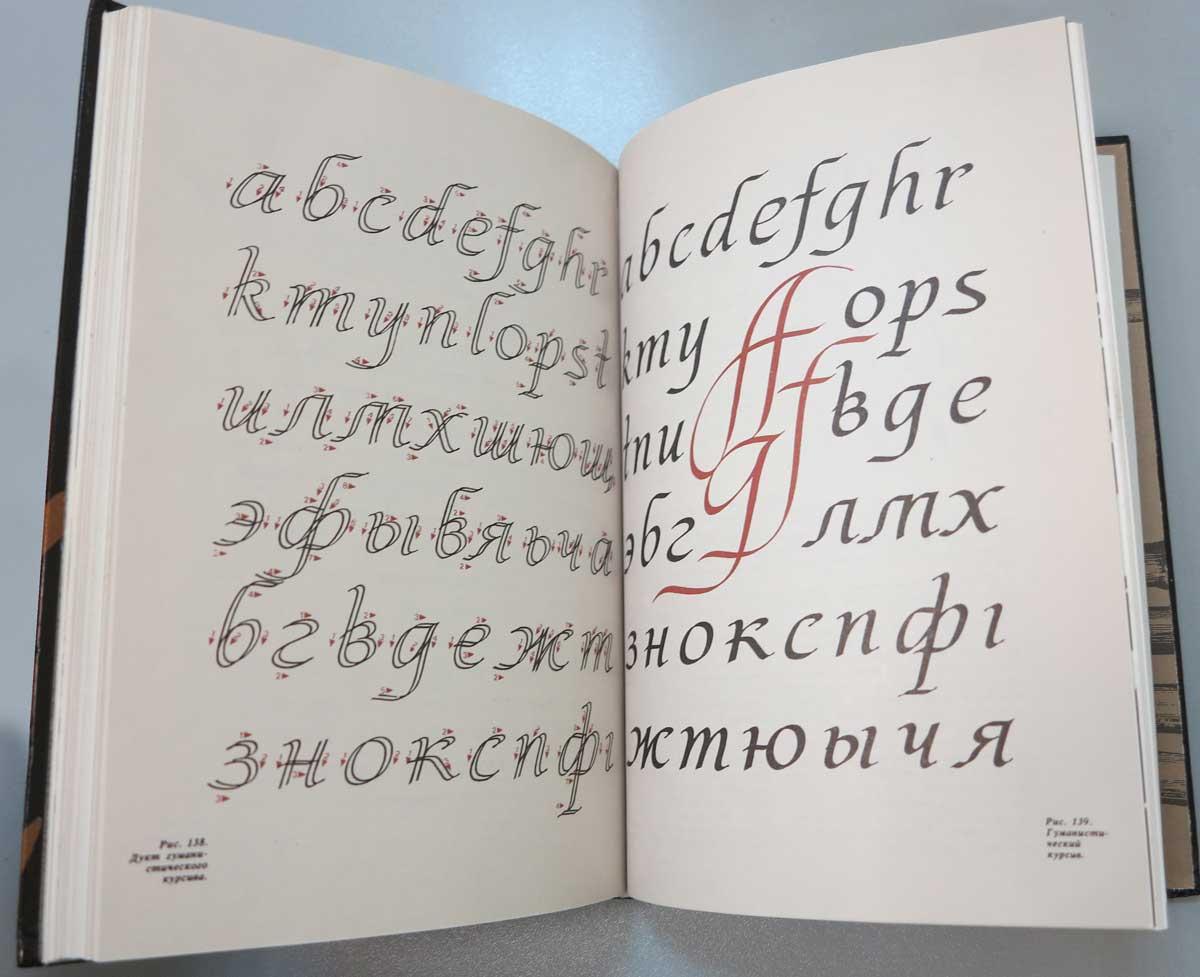 abcdefghr
kmynlopst
илтхшющ
эфывяьча
бгвдежт
знокспфі
Рис. 138.
Дукт гумани-
стического
курсива.
abcdefghr
kmy ops
tnu вде
эбг лмх
знокспфі
жтюычя
Рис. 139.
Гуманисти-
ческий
курсив.